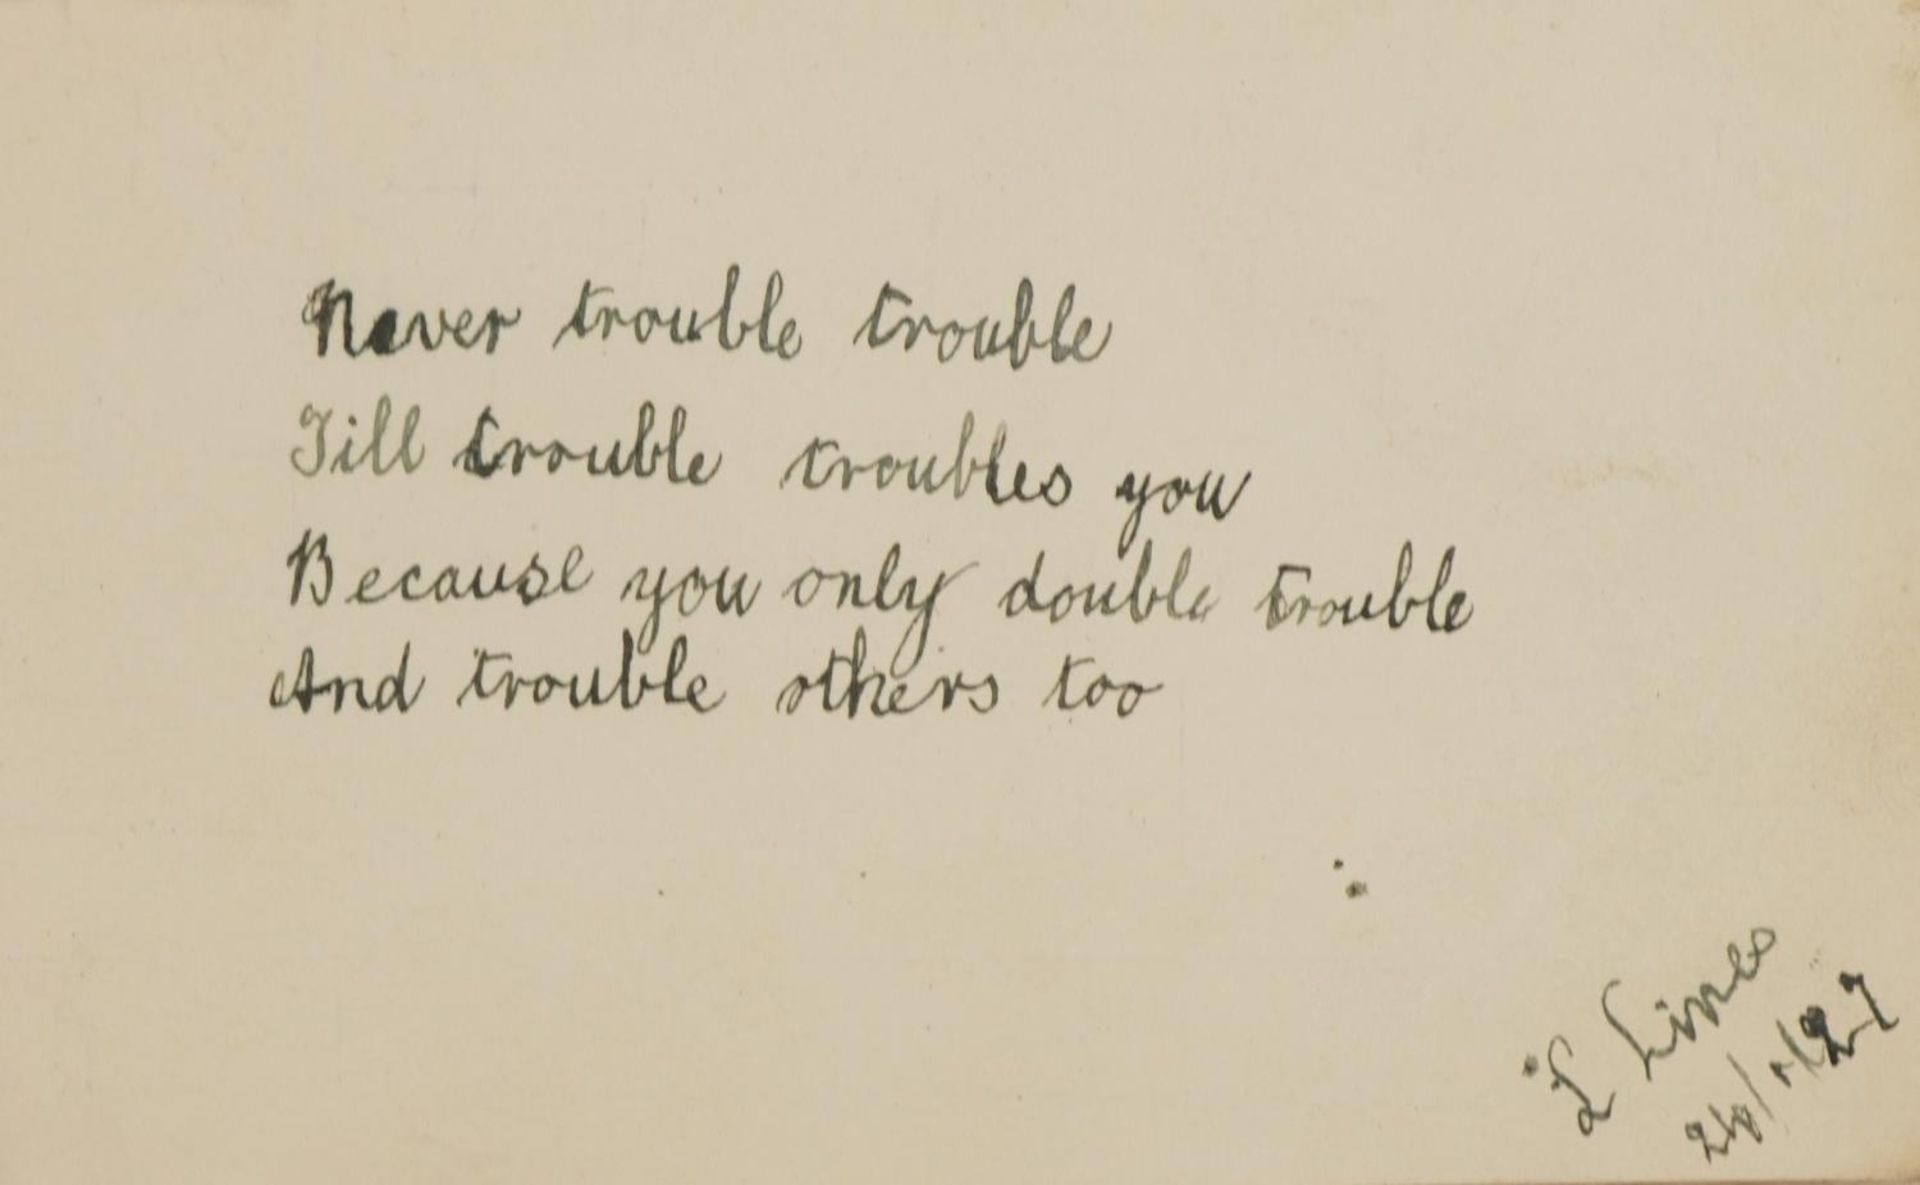 Never trouble trouble
Till trouble troubles you
Because you only double trouble
And trouble others too
Lines